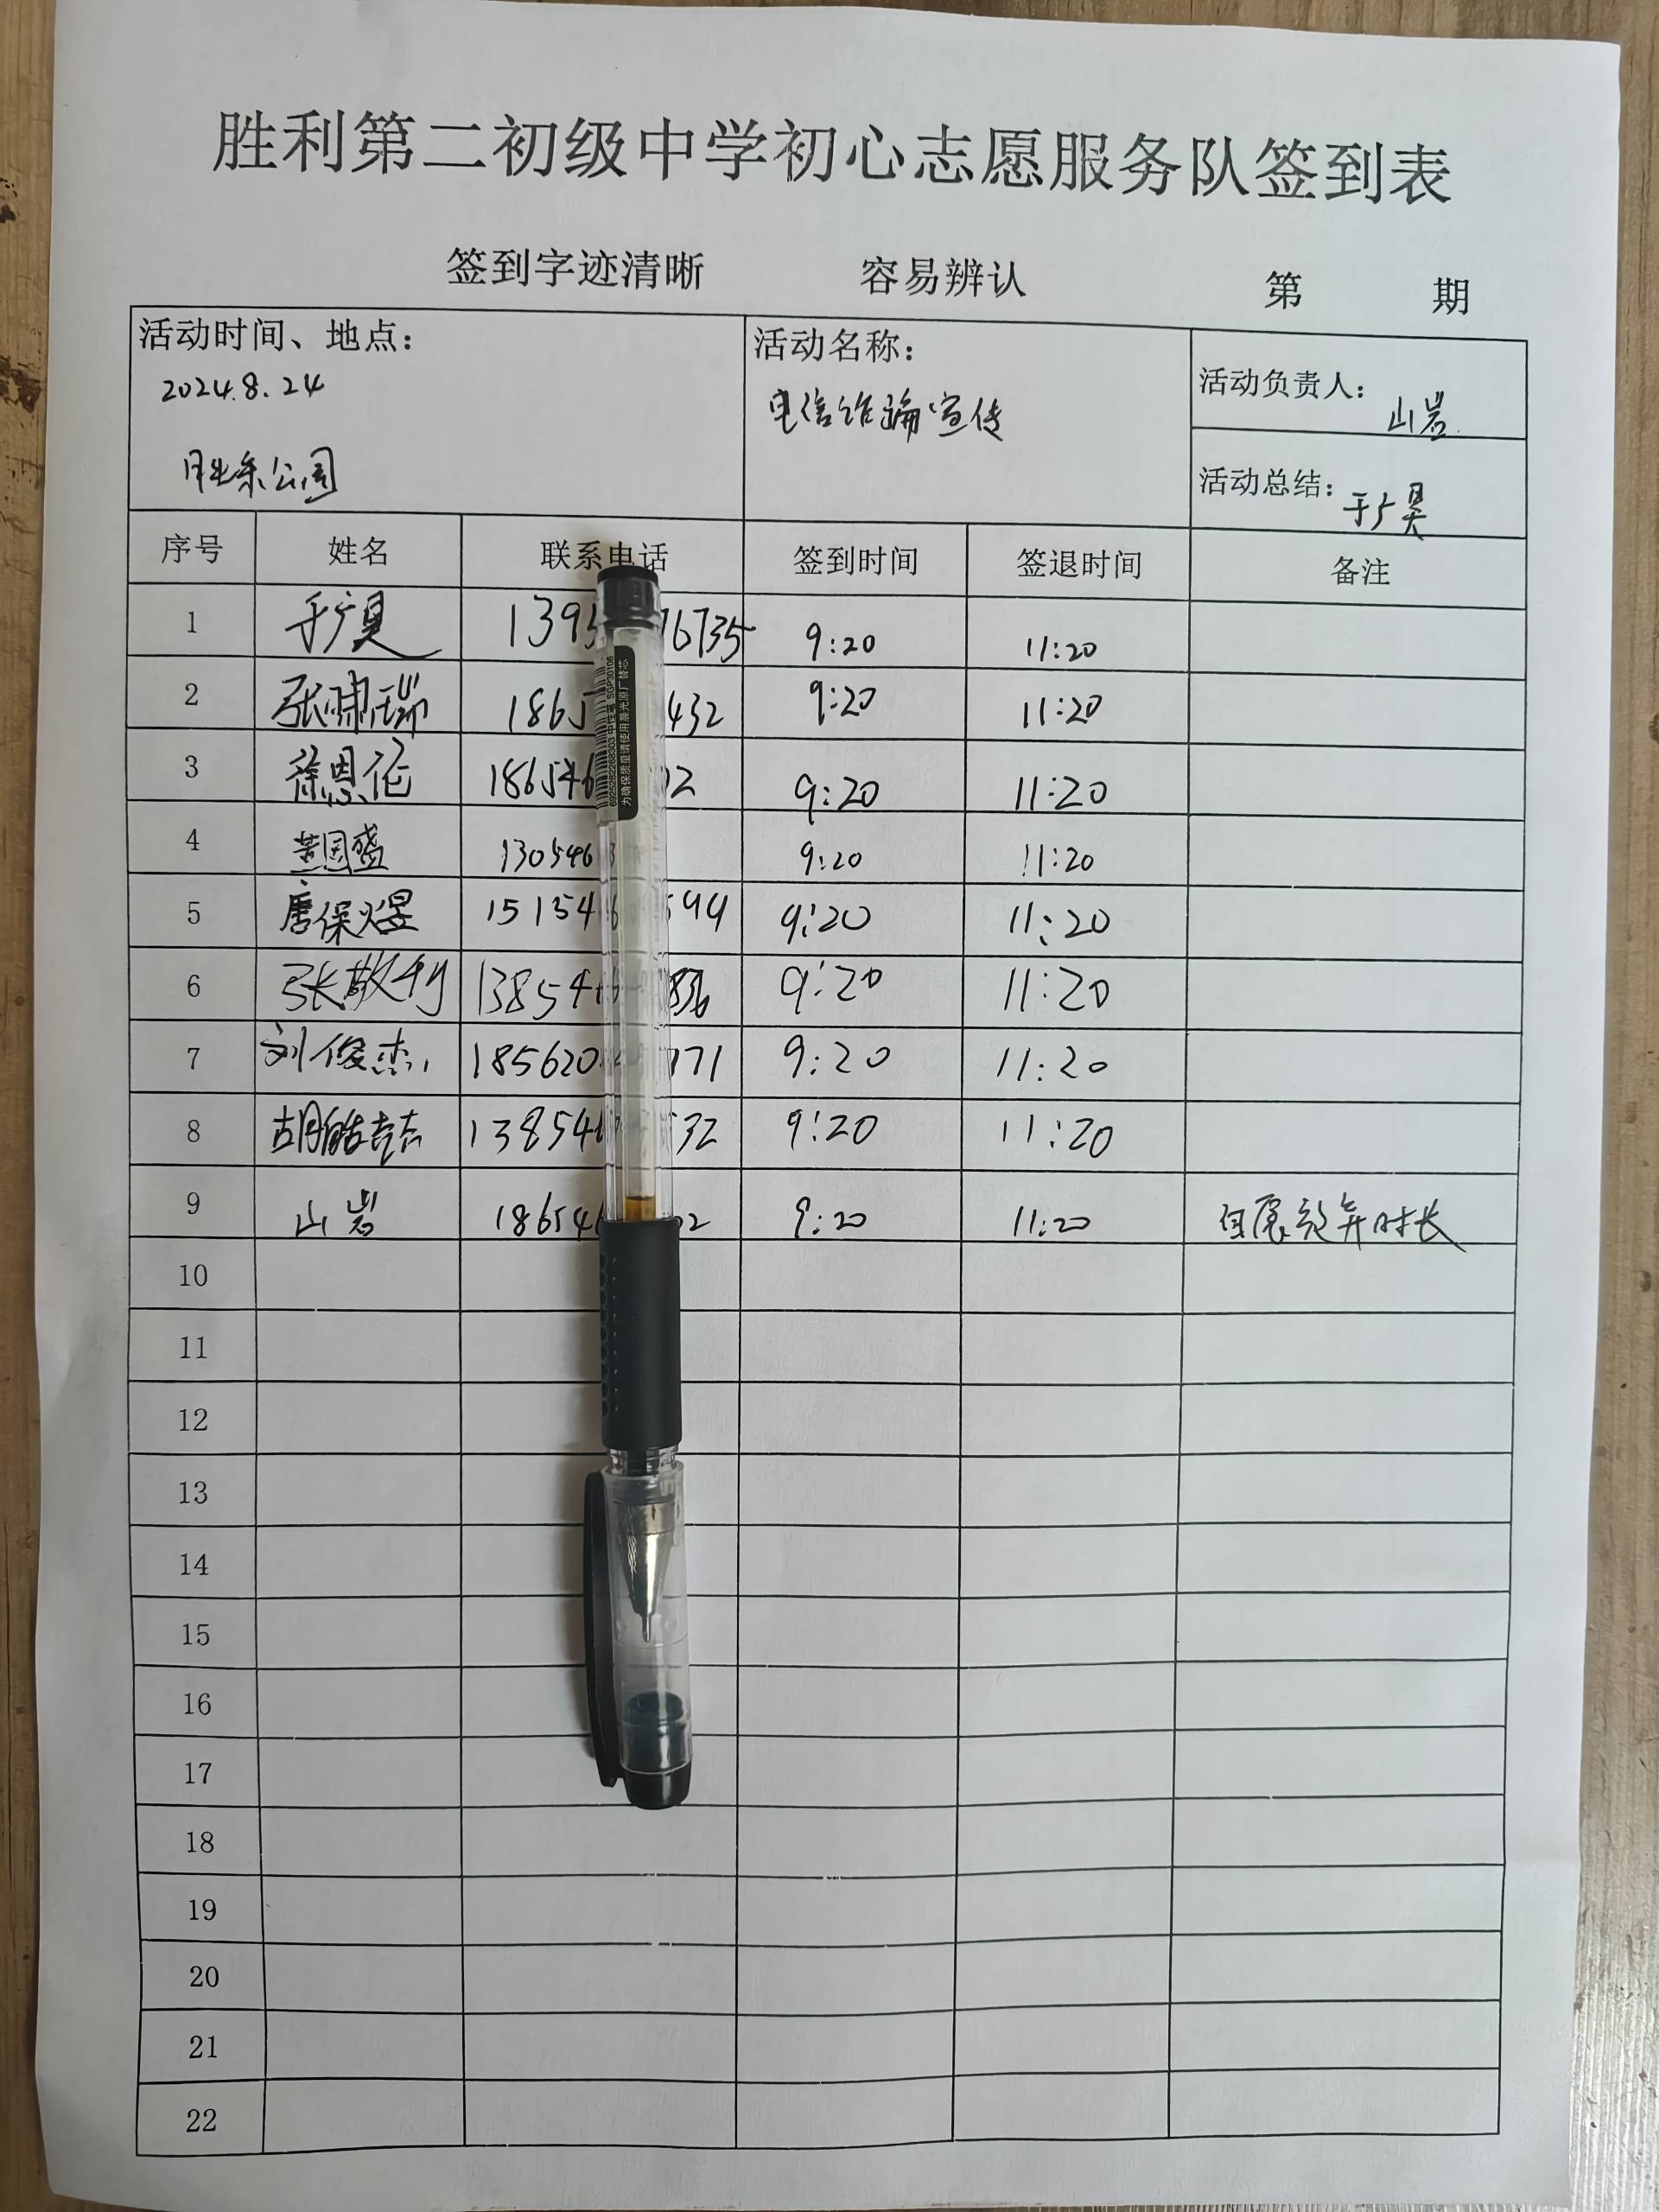 胜利第二初级中学初心志愿服务队签到表
签到字迹清晰 容易辨认 第 期
活动时间、地点： 活动名称： 活动负责人：山岩
2024.8.24 电信诈骗宣传
公园 活动总结：于广昊
序号 姓名 联系电话 签到时间 签退时间 备注
1 于广昊 139 76735 9:20 11:20
2 张啸瑞 1865 432 9:20 11:20
3 徐恩伦 186546 02 9:20 11:20
4 国盛 130546 9:20 11:20
5 唐保煜 151546 594 9:20 11:20
6 张敬利 138546 836 9:20 11:20
7 刘俊杰 185620 771 9:20 11:20
8 胡皓喆 138546 532 9:20 11:20
9 山岩 186546 02 9:20 11:20 自愿放弃时长
10
11
12
13
14
15
16
17
18
19
20
21
22
6925282288303 中性笔 SGP30106
为确保质量请使用晨光原厂替芯